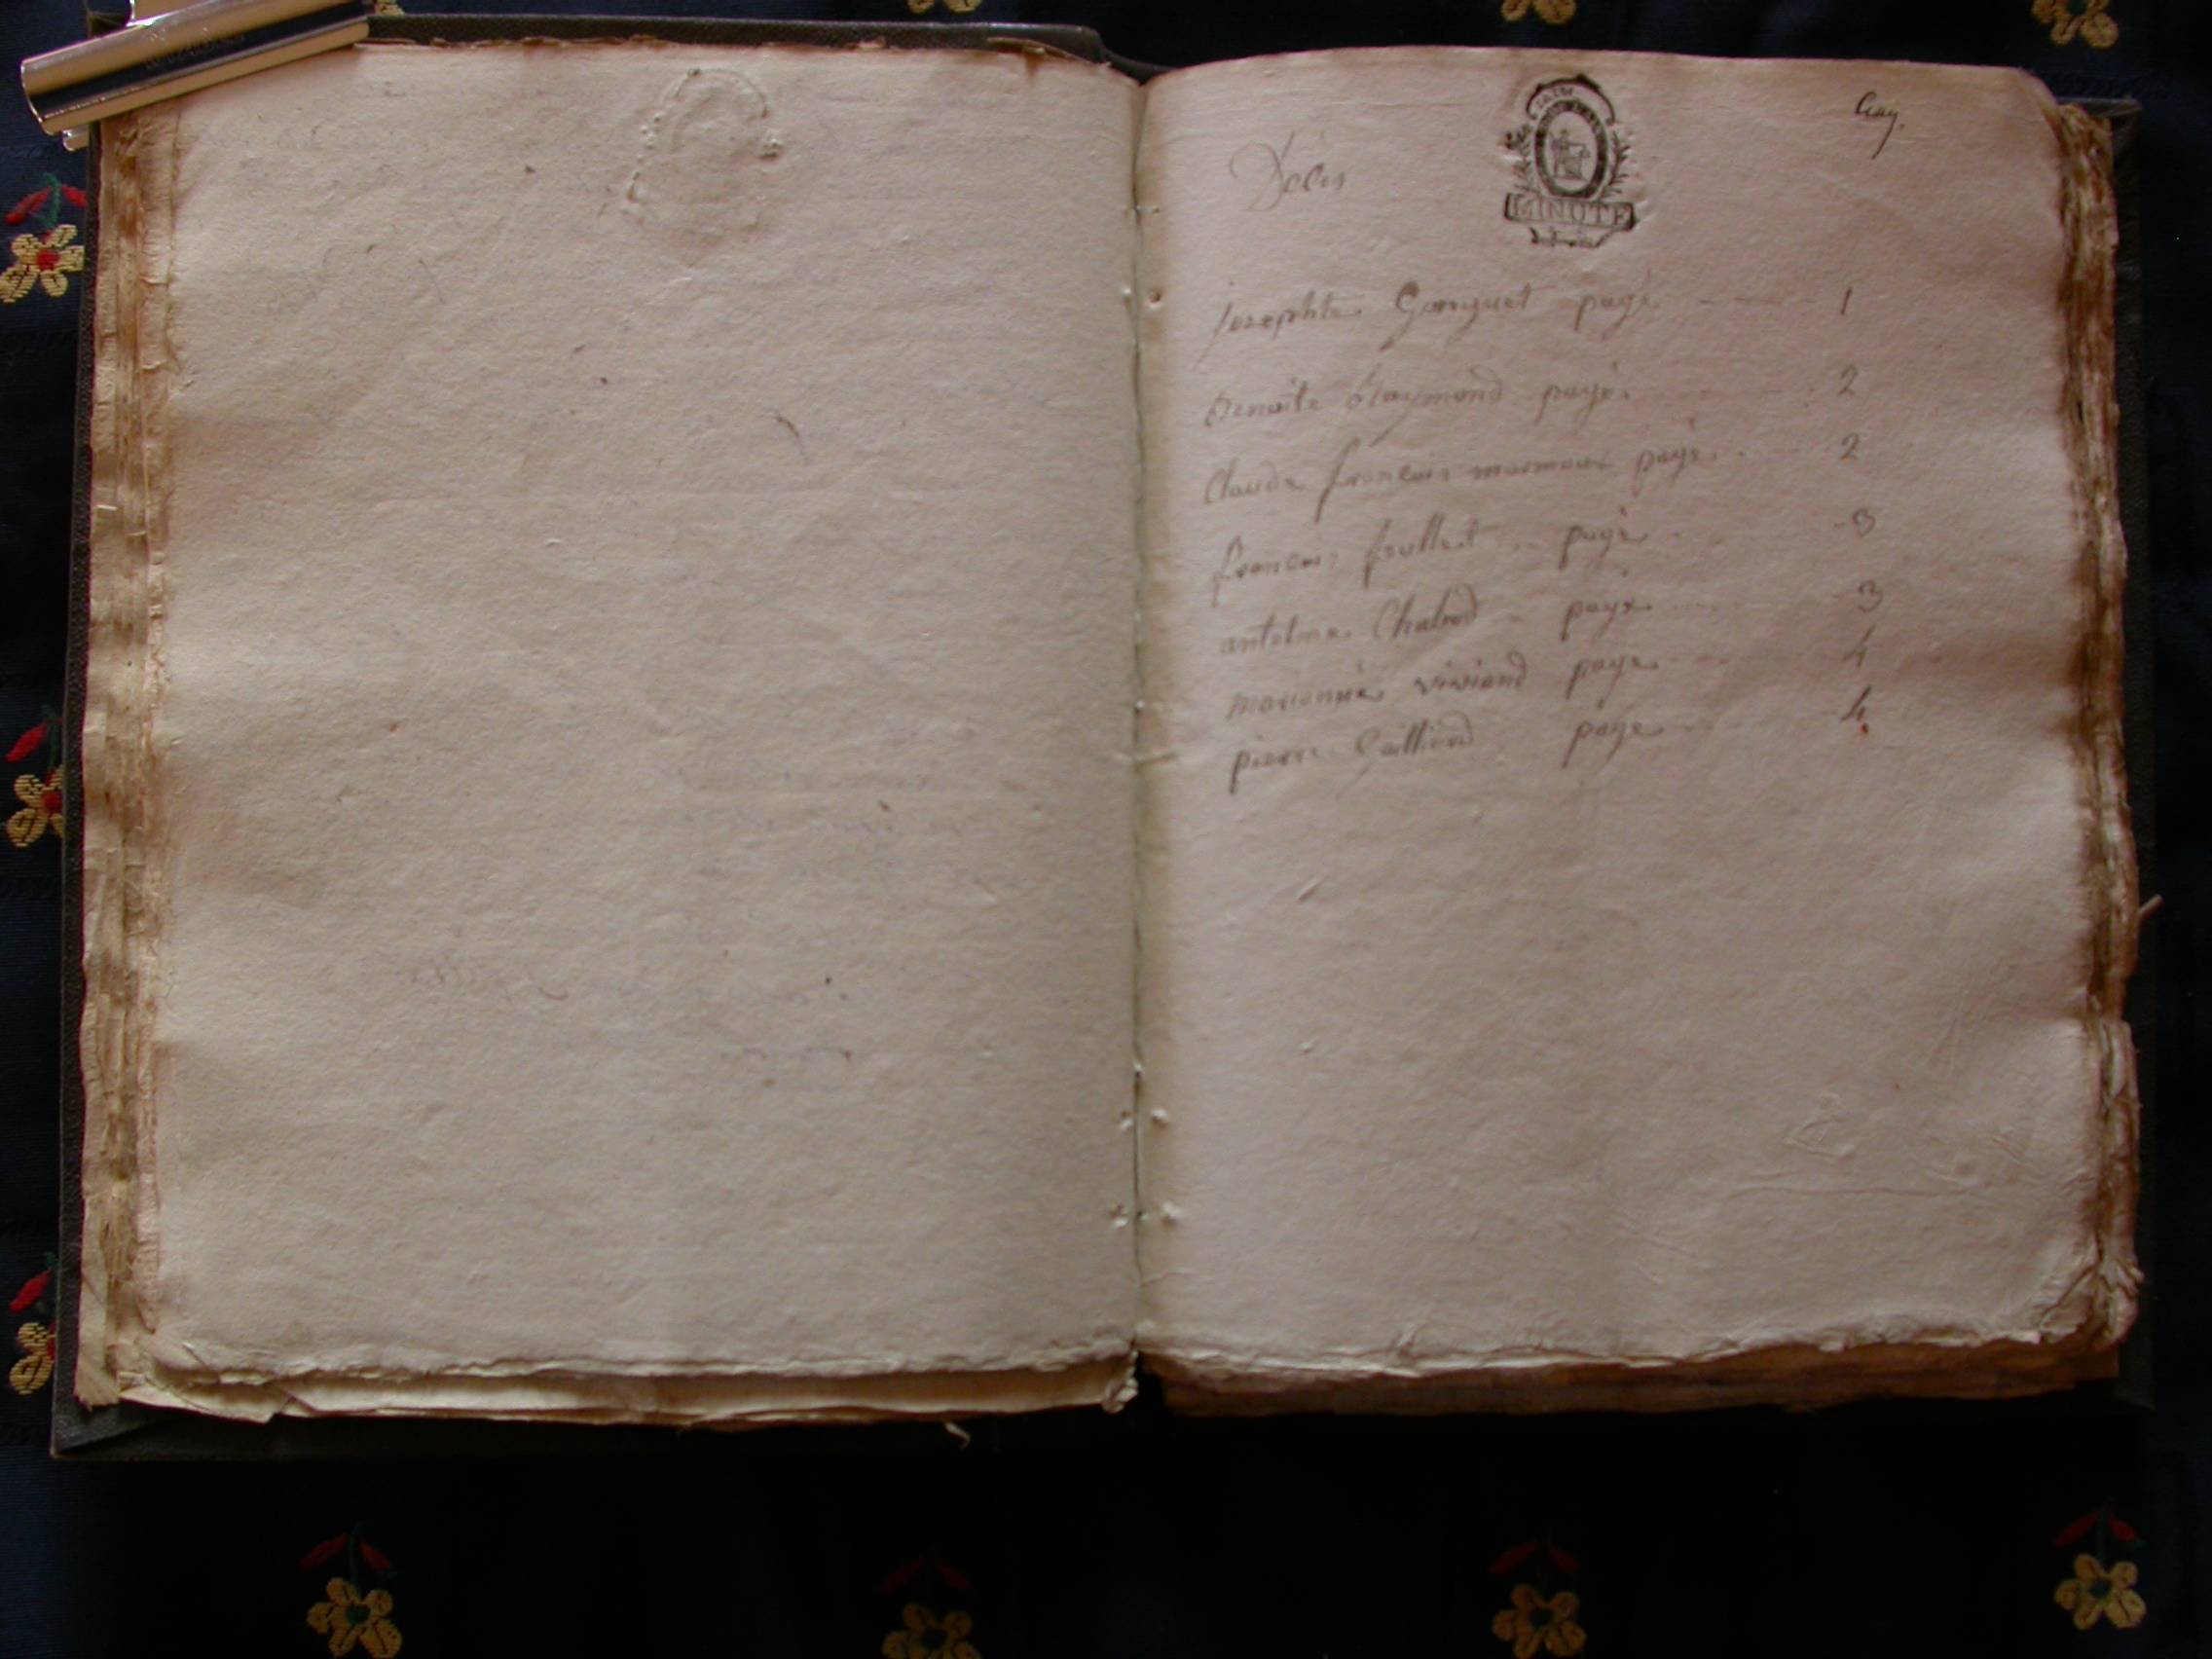 Décès
MINUTE
josephte Ganguet page 1
Benoite Raymond page 2
Claude francois page 2
francois feullet page 3
antelme Chalod page 3
marianne viviand page 4
pierre page 4